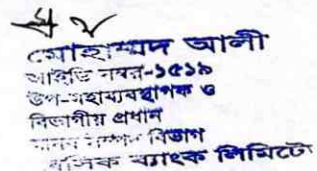 মোহাম্মদ আলী
আইডি নম্বর-১৫১৯
উপ-মহাব্যবস্থাপক ও
বিভাগীয় প্রধান
মানব সম্পদ বিভাগ
বেসিক ব্যাংক লিমিটে